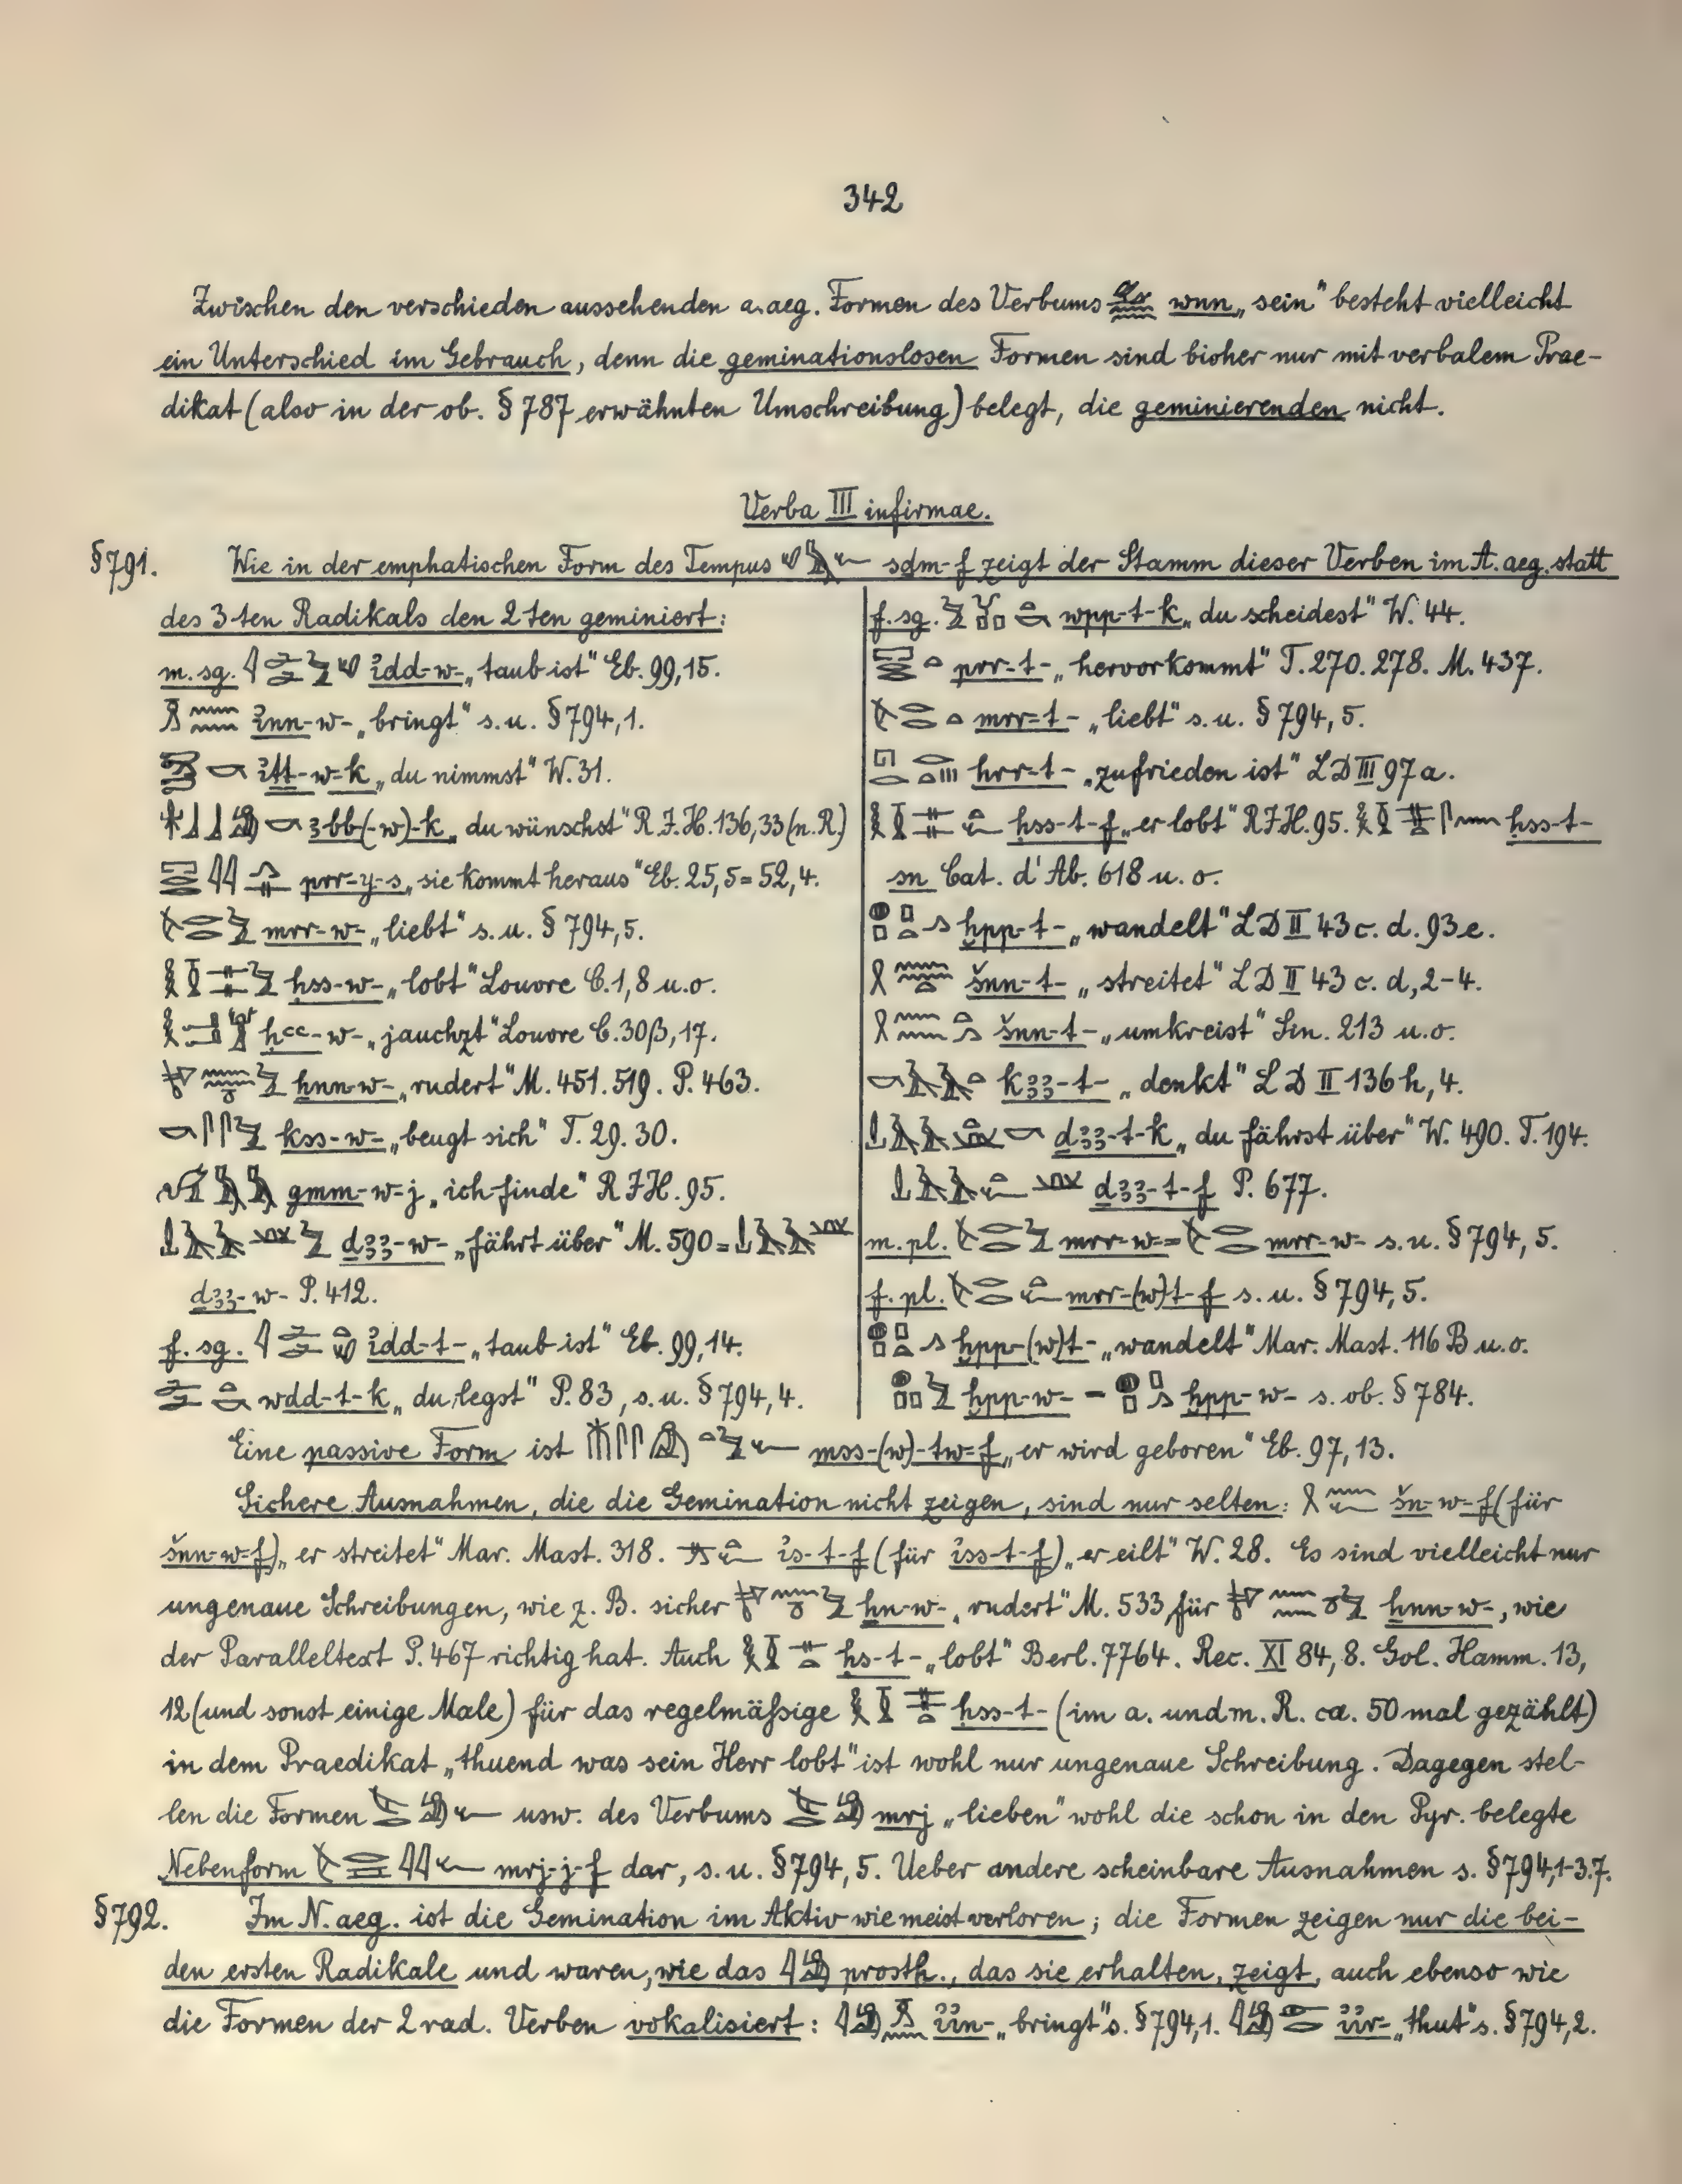 342
Zwischen den verschieden aussehenden a.aeg. Formen des Verbums wnn „sein" besteht vielleicht
ein Unterschied im Gebrauch, denn die geminationslosen Formen sind bisher nur mit verbalem Prae-
dikat (also in der ob. § 787 erwähnten Umschreibung) belegt, die geminierenden nicht.
Verba III infirmae.
§791. Wie in der emphatischen Form des Tempus sḏm-f zeigt der Stamm dieser Verben im A. aeg. statt
des 3ten Radikals den 2ten geminiert:
m. sg. ꞽdd-w- „taub ist" Eb. 99,15.
ꞽnn-w- „bringt" s. u. § 794,1.
ꞽṯṯ-w-k „du nimmst" W. 31.
ꜣbb(-w)-k „du wünschst" R.J.H. 136,33 (n. R.)
prr-y-s „sie kommt heraus" Eb. 25,5 = 52,4.
mrr-w- „liebt" s. u. § 794,5.
ḥss-w- „lobt" Louvre C. 1,8 u. o.
ḥꜥꜥ-w- „jauchzt" Louvre C. 30β,17.
ẖnn-w- „rudert" M. 451. 519. P. 463.
kss-w- „beugt sich" T. 29. 30.
gmm-w-j „ich finde" RJH. 95.
dꜣꜣ-w- „fährt über" M. 590 =
dꜣꜣ-w- P. 412.
f. sg. ꞽdd-t- „taub ist" Eb. 99,14.
wdd-t-k „du legst" P. 83, s. u. § 794,4.
f. sg. wpp-t-k „du scheidest" W. 44.
prr-t- „hervorkommt" T. 270. 278. M. 437.
mrr-t- „liebt" s. u. § 794,5.
hrr-t- „zufrieden ist" LD III 97a.
ḥss-t-f „er lobt" RJH. 95. ḥss-t-
sn Cat. d'Ab. 618 u. o.
ḫpp-t- „wandelt" LD II 43 c. d. 93 e.
šnn-t- „streitet" LD II 43 c. d, 2-4.
šnn-t- „umkreist" Sin. 213 u. o.
kꜣꜣ-t- „denkt" LD II 136 h, 4.
dꜣꜣ-t-k „du fährst über" W. 490. T. 194.
dꜣꜣ-t-f P. 677.
m. pl. mrr-w- = mrr-w- s. u. § 794,5.
f. pl. mrr-(w)t-f s. u. § 794,5.
ḫpp-(w)t- „wandelt" Mar. Mast. 116 B u. o.
ḫpp-w- = ḫpp-w- s. ob. § 784.
Eine passive Form ist mss-(w)-tw-f „er wird geboren" Eb. 97,13.
Sichere Ausnahmen, die die Gemination nicht zeigen, sind nur selten: šn-w-f (für
šnn-w-f) „er streitet" Mar. Mast. 318. ꞽs-t-f (für ꞽss-t-f) „er eilt" W. 28. Es sind vielleicht nur
ungenaue Schreibungen, wie z. B. sicher ẖn-w- „rudert" M. 533 für ẖnn-w-, wie
der Paralleltext P. 467 richtig hat. Auch ḥs-t- „lobt" Berl. 7764. Rec. XI 84,8. Gol. Hamm. 13,
12 (und sonst einige Male) für das regelmäßige ḥss-t- (im a. und m. R. ca. 50 mal gezählt)
in dem Praedikat „thuend was sein Herr lobt" ist wohl nur ungenaue Schreibung. Dagegen stel-
len die Formen usw. des Verbums mrj „lieben" wohl die schon in den Pyr. belegte
Nebenform mrj-j-f dar, s. u. § 794,5. Ueber andere scheinbare Ausnahmen s. § 794,1-3.7.
§792. Im N. aeg. ist die Gemination im Aktiv wie meist verloren; die Formen zeigen nur die bei-
den ersten Radikale und waren, wie das prosth., das sie erhalten, zeigt, auch ebenso wie
die Formen der 2rad. Verben vokalisiert: ꞽꞽn- „bringt" s. § 794,1. ꞽꞽr- „thut" s. § 794,2.